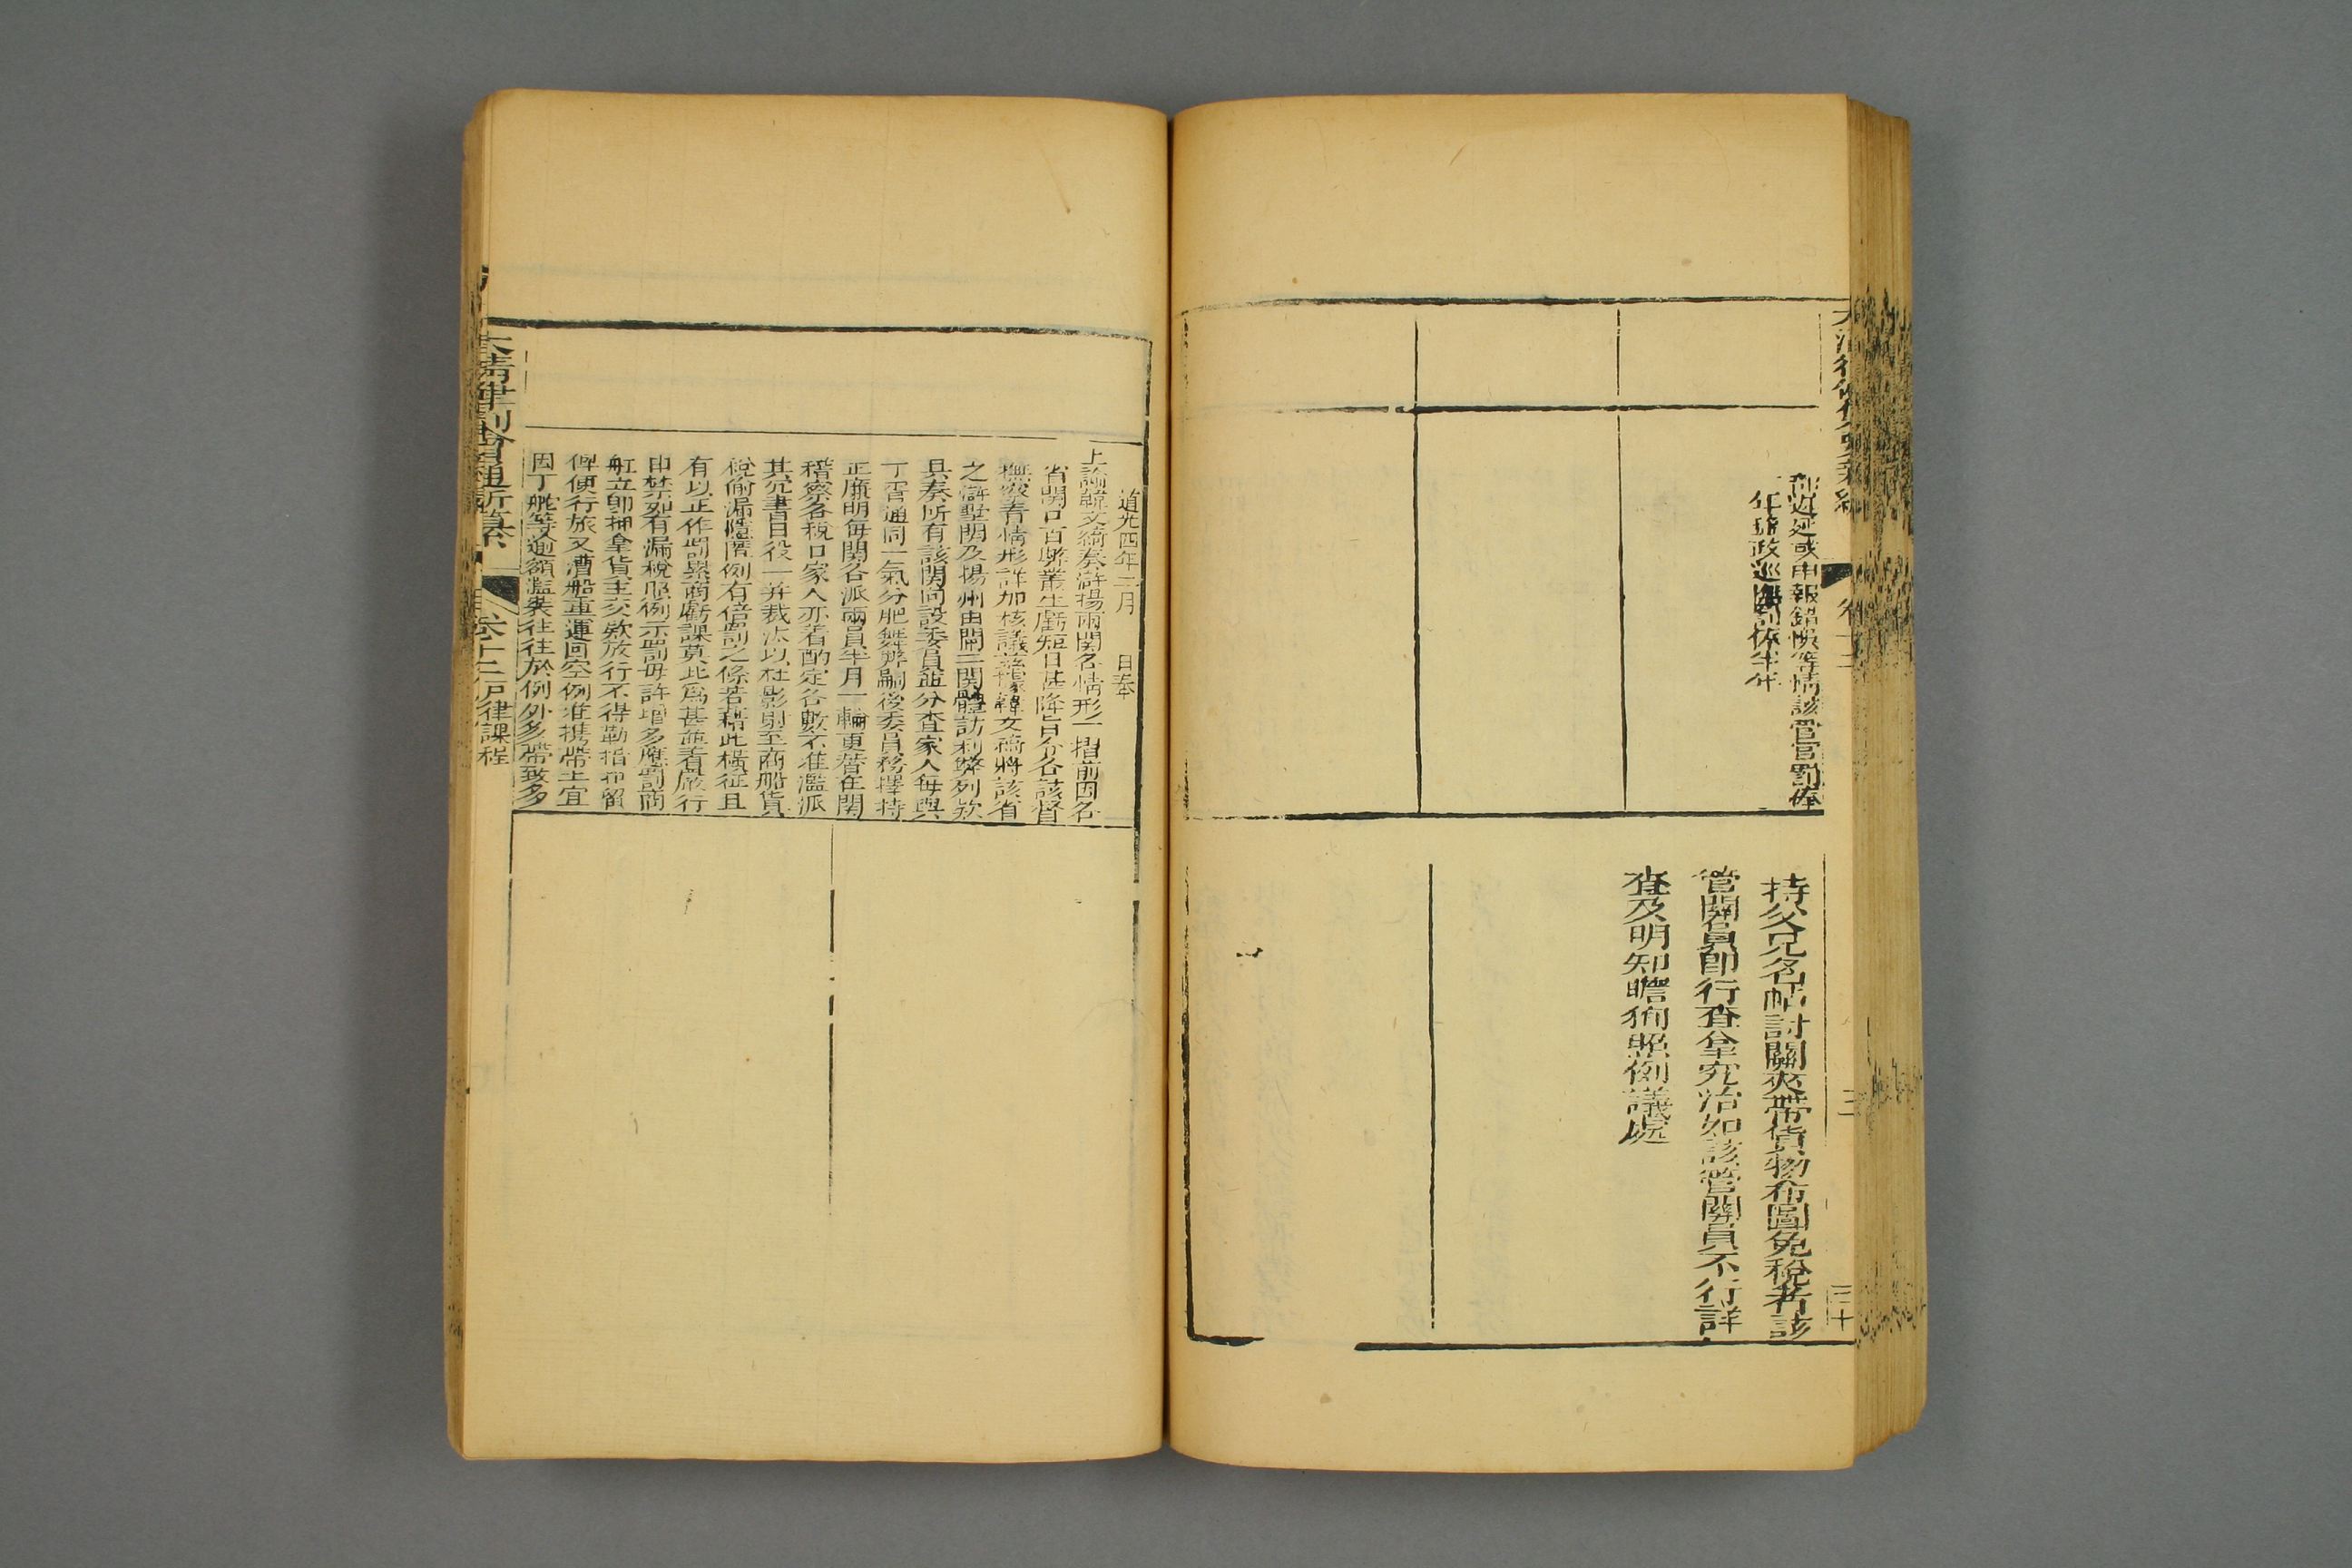 卷十二
三十
遲延或申報錯悞等情該管官罰俸
一年鹽政巡
持父兄名帖討關夾帶貨物希圖免稅者該
管關員即行查拿究治如該管關員不行詳
查及明知瞻徇照例議處
道光四年二月 日奉
上諭韓文綺奏滸揚兩關各情形一摺前因各
省關口百弊叢生虧短日甚降旨分令該督
撫嚴查情形詳加核議茲據韓文綺將該省
之滸墅關及揚州由閘二關體訪利弊列款
具奏所有該關向設委員並分查家人每與
丁胥通同一氣分肥舞弊嗣後委員務擇持
正廉明每關各派兩員半月一輪更替在關
稽察各稅口家人亦著酌定名數不准濫派
其冗書白役一并裁汰以杜影射至商船貨
稅偷漏隱匿例有倍罰之條若藉此橫征且
有以正作罰累商虧課莫此為甚並著嚴行
申禁如有漏稅照例示罰毋許增多應罰商
船立即押拿貨主交款放行不得勒掯
俾便行旅又漕船重運回空例准攜帶土宜
因丁舵等逾額濫裝往往於例外多帶致多
大清律例會通新纂
卷十二戶律課程